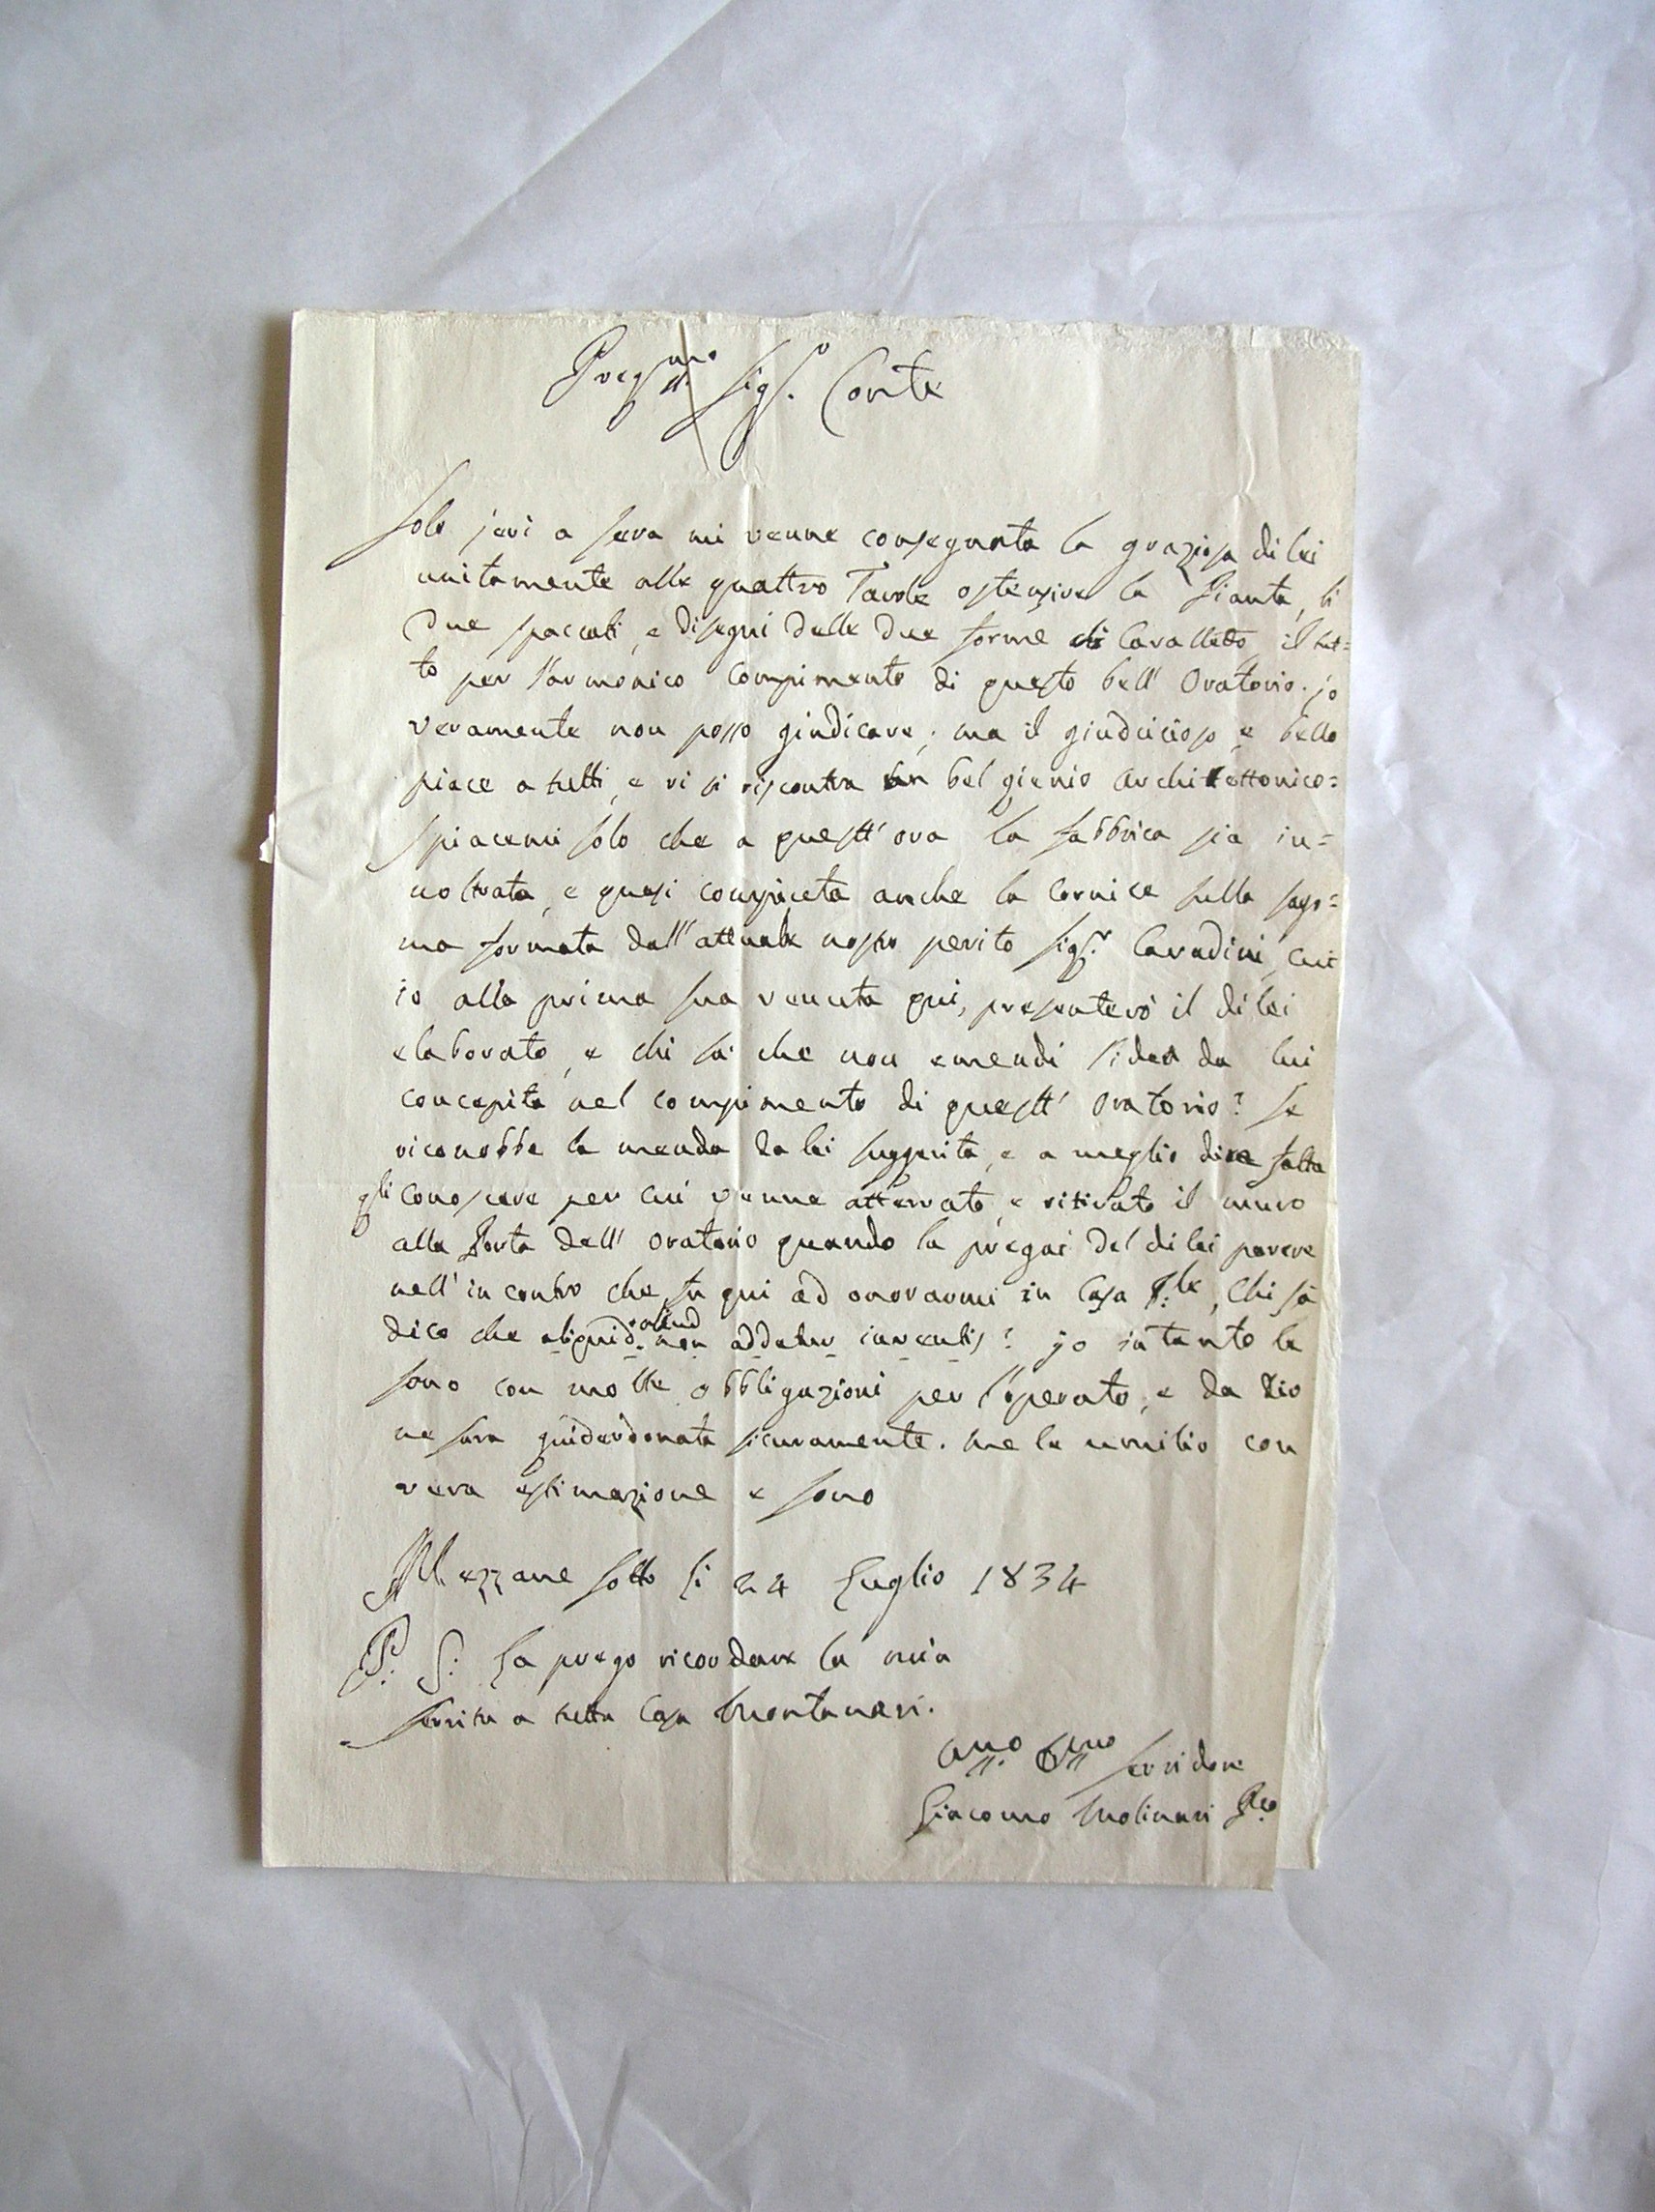 Preg.mo Sig.r Conte
Solo jeri a sera mi venne consegnata la graziosa di lei
unitamente alle quattro Tavole ostensive la Pianta, li
due spaccati, e disegni delle due forme di Cavalletto, il tut=
to per l'armonico compimento di questo bell' Oratorio. jo
veramente non posso giudicare; ma il giudicioso e bello
piace a tutti, e vi si riscontra un bel gienio architettonico=
Spiacemi solo che a quest' ora la fabbrica sia in=
noltrata, e quasi compiceta anche la Cornice sulla sago=
ma formata dall' attuale nostro perito Sig.r Cavadini, cui
io alla prima sua venuta qui, presenterò il di lei
elaborato, e chi sà che non emendi l'idea da lui
concepita nel compimento di quest' Oratorio? Se
riconobbe la menda da lei suggerita, e a meglio dire fatta
gli conoscere per cui venne atterrato, e ritirato il muro
alla Porta dell' Oratorio quando la pregai del di lei parere
nell' incontro che fu qui ad onorarmi in Casa P.le, Chi sà
dico che aliquid aliud non addatur inventis? jo intanto le
sono con molte obbligazioni per l'operato, e da Dio
ne sarà guiderdonata sicuramente. me le umilio con
vera estimazione e sono
Mezzane sotto li 24 Luglio 1834
P: S: La prego ricordare la mia
servitù a tutta Casa Montanari.
Umo Obmo Servidore
Giacomo Molinari